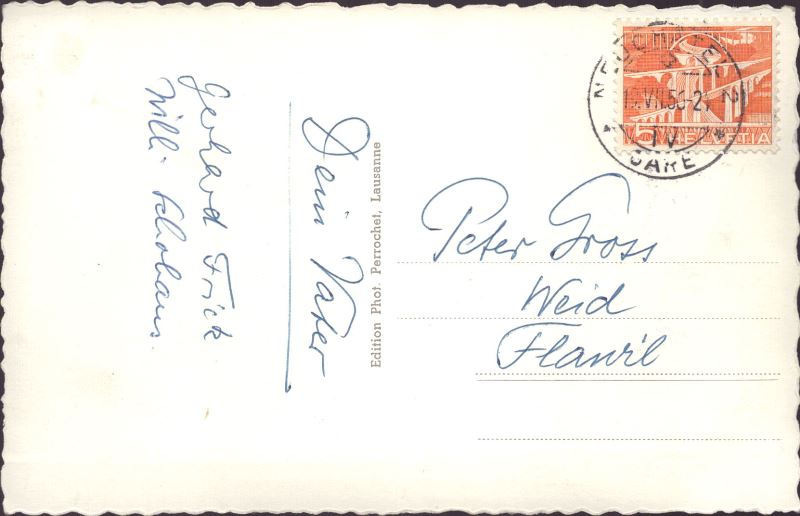 Gerhard Frick
Willi Schohaus.
Dein Vater
Edition Phot. Perrochet, Lausanne
NEUCHATEL 2
IV
GARE
5 HELVETIA
Peter Gross
Weid
Flawil